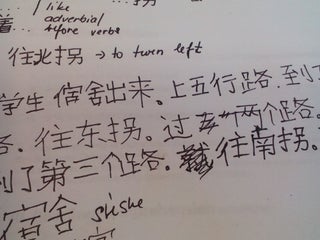 / like
着 adverbial
before verbs
往北拐 → to turn left
学生宿舍出来。上五行路。到
路。往东拐。过 两个路。
到了第三个路。往南拐。
宿舍 sushe